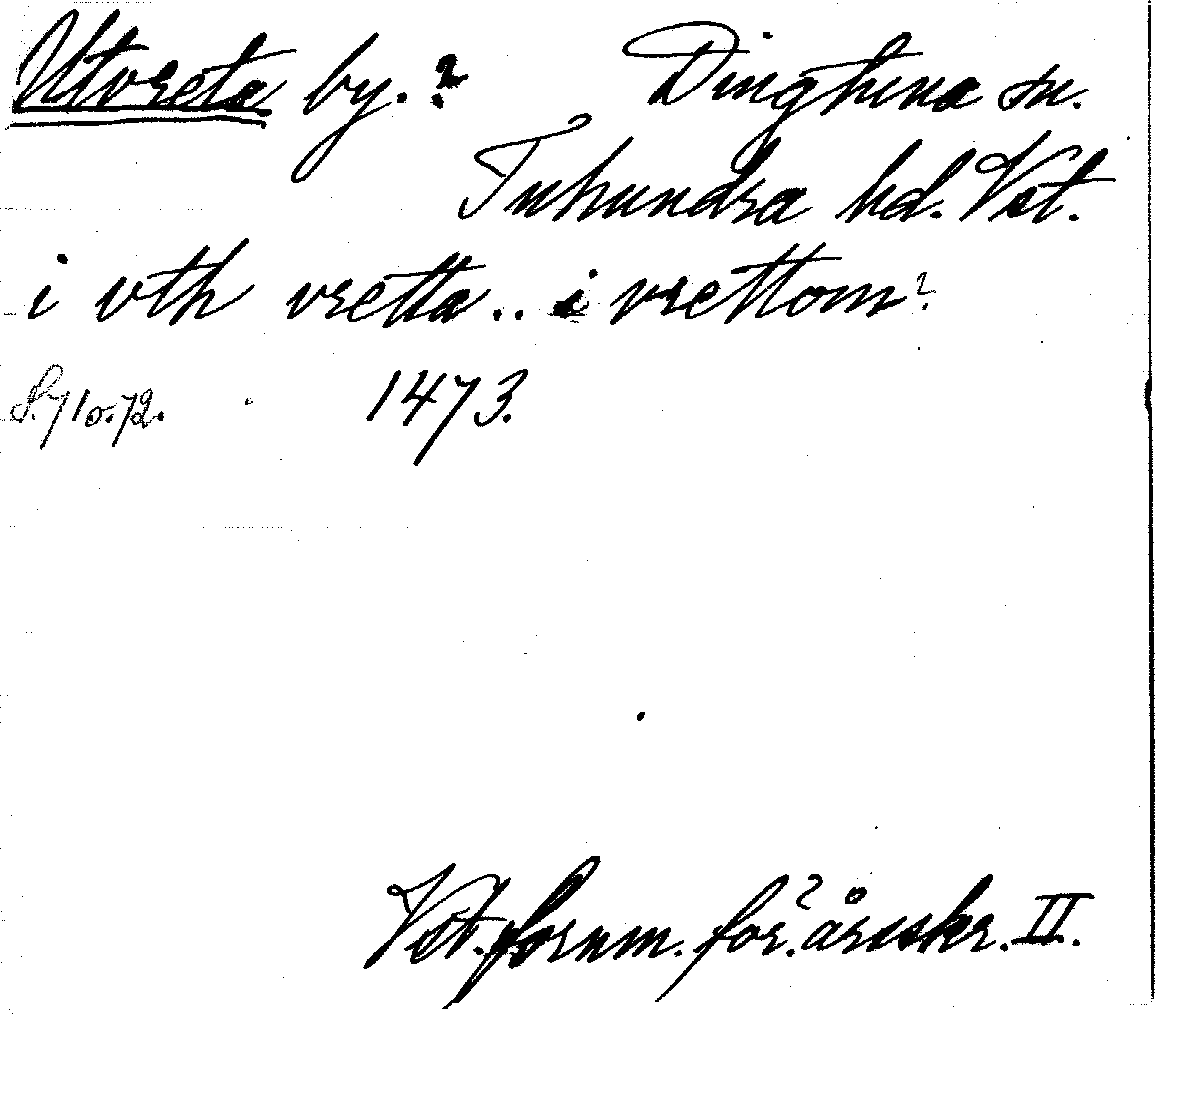 Utvreta by.? Dingtuna sn.
Tuhundra hd. Vst.
i vth vretta .. i vrettom?
S. 71 o. 72. 1473.
Vst. fornm. för:s årsskr. II.